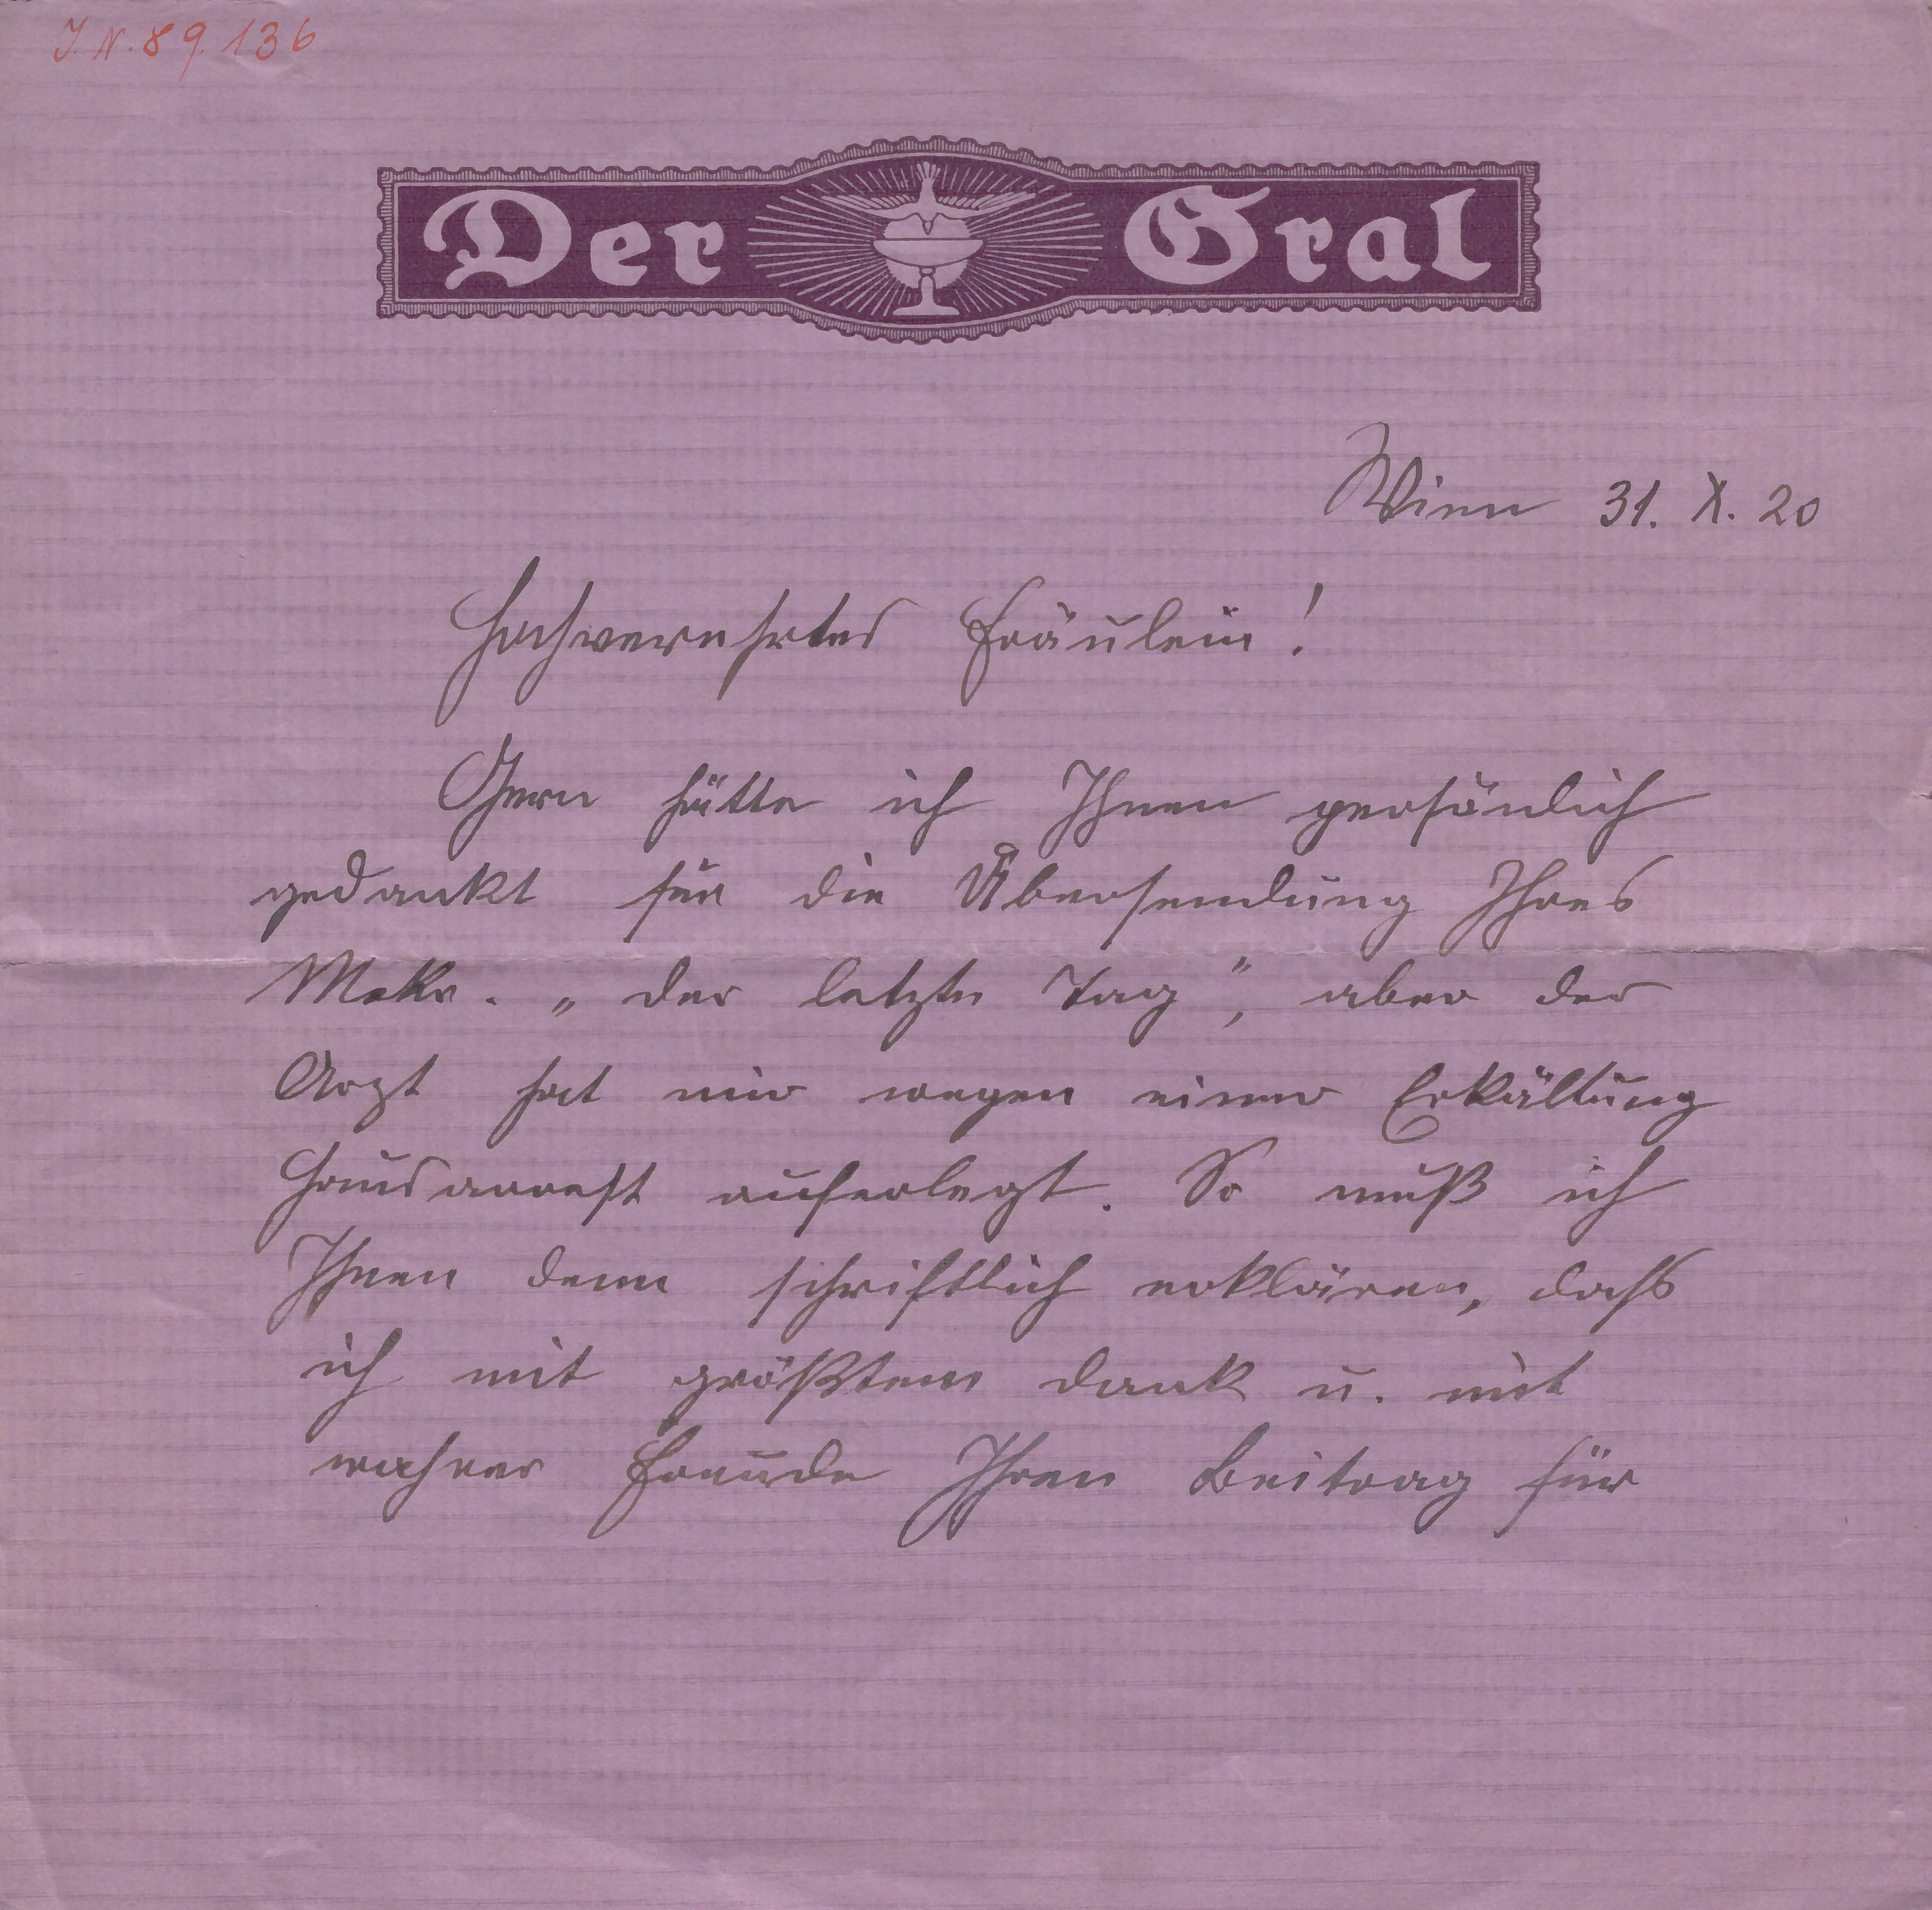 J. N. 89.136
Der Gral
Wien 31. X. 20
Hochverehrtes Fräulein!
Gern hätte ich Ihnen persönlich
gedankt für die Übersendung Ihres
"der letzte Tag", aber der
Arzt hat mir wegen einer Erkältung
Hausarrest auferlegt. So muß ich
Ihnen denn schriftlich erklären, dass
ich mit größtem Dank u. mit
wahrer Freude Ihren Beitrag für